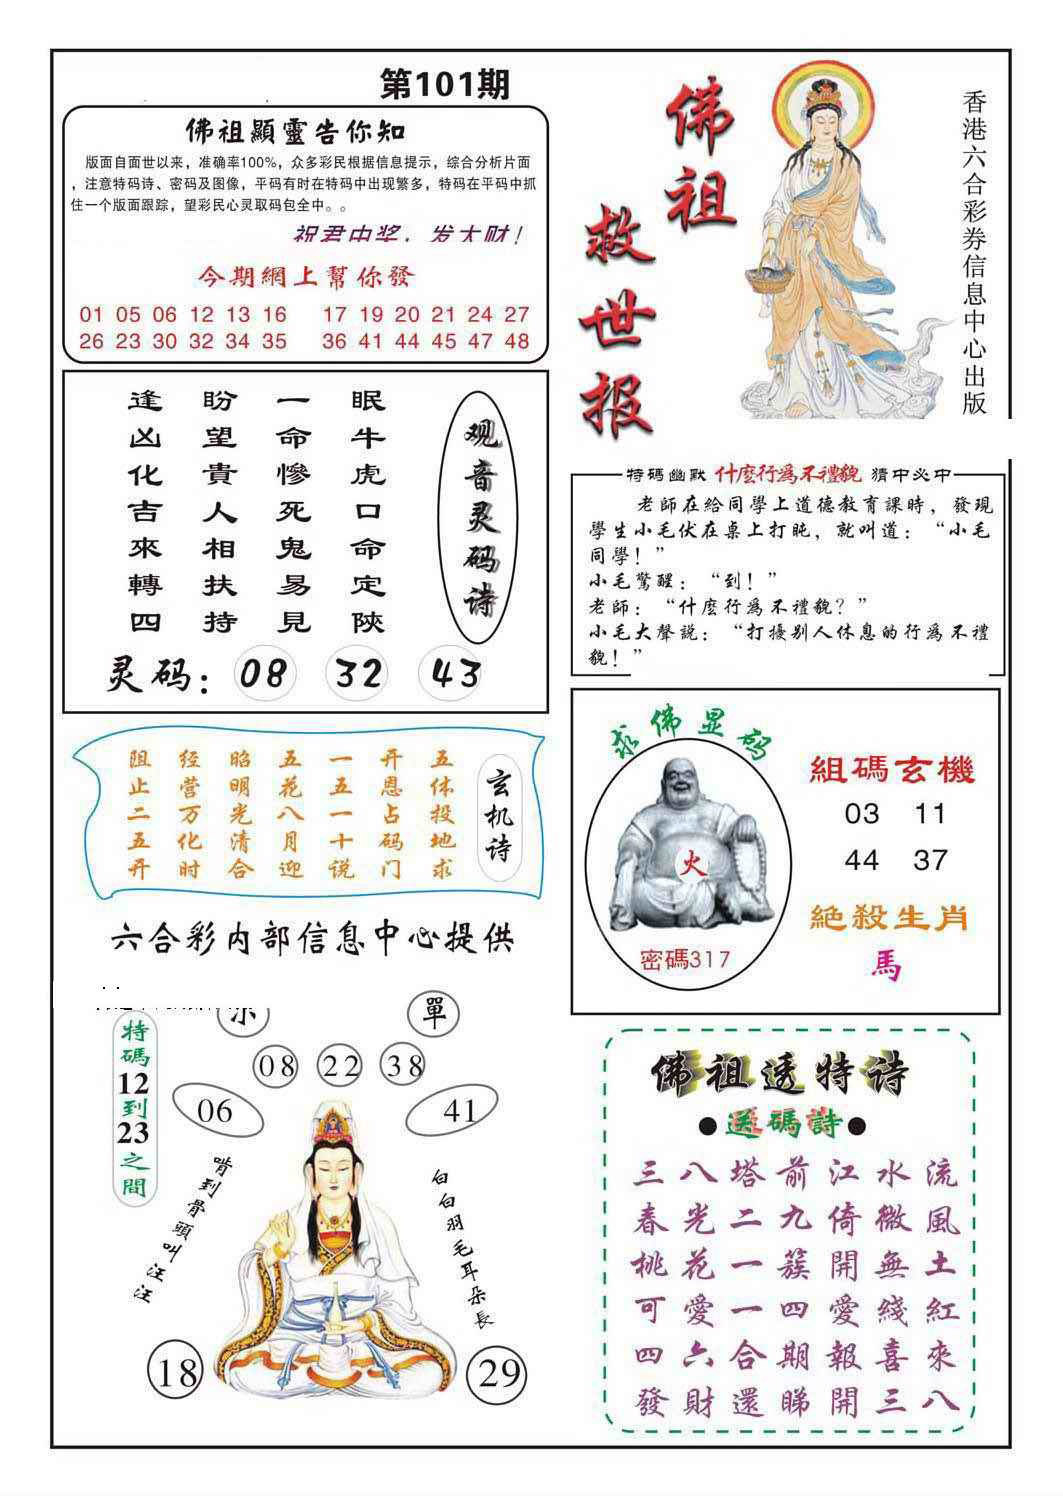 第101期
佛祖顯靈告你知
版面自面世以来，准确率100%，众多彩民根据信息提示，综合分析片面
，注意特码诗、密码及图像，平码有时在特码中出现繁多，特码在平码中抓
住一个版面跟踪，望彩民心灵取码包全中。。
祝君中奖，发大财！
今期網上幫你發
01 05 06 12 13 16 17 19 20 21 24 27
26 23 30 32 34 35 36 41 44 45 47 48
佛祖
救世报
香港六合彩券信息中心出版
观音灵码诗
眠牛虎口命定陝
一命慘死鬼易見
盼望貴人相扶持
逢凶化吉來轉四
灵码：08 32 43
特碼幽默 什麼行為不禮貌 猜中必中
老師在給同學上道德教育課時，發現
學生小毛伏在桌上打盹，就叫道：“小毛
同學！”
小毛驚醒：“到！”
老師：“什麼行為不禮貌？”
小毛大聲説：“打擾别人休息的行為不禮
貌！”
玄机诗
五体投地求
开恩占码门
一五一十说
五花八月迎
昭明光清合
经营万化时
阻止二五开
六合彩内部信息中心提供
求佛显码
火
密碼317
組碼玄機
03 11
44 37
絕殺生肖
馬
單
08 22 38
06 41
特碼12到23之間
啃到骨頭叫汪汪
白白羽毛耳朵長
18 29
佛祖透特诗
●送碼詩●
三八塔前江水流
春光二九倚微風
桃花一簇開無土
可愛一四愛綫紅
四六合期報喜來
發財還睇開三八